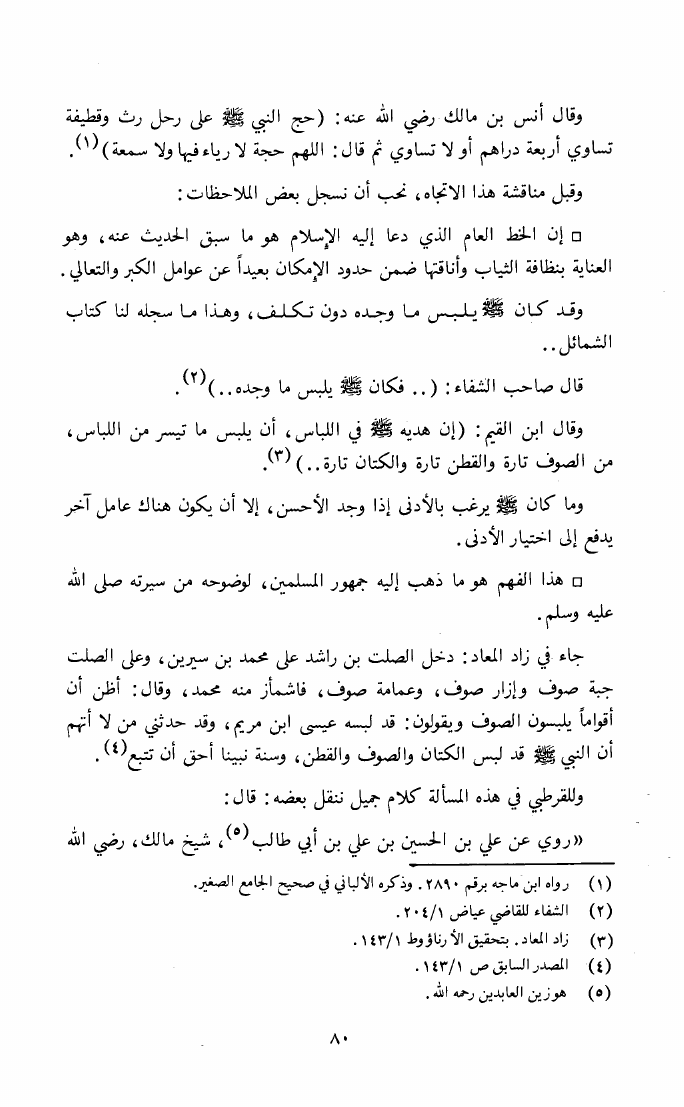 وقال أنس بن مالك رضي الله عنه: (حج النبي ﷺ على رحل رث وقطيفة
تساوي أربعة دراهم أو لا تساوي ثم قال: اللهم حجة لا رياء فيها ولا سمعة)(١).
وقبل مناقشة هذا الاتجاه، نحب أن نسجل بعض الملاحظات:
□ إن الخط العام الذي دعا إليه الإسلام هو ما سبق الحديث عنه، وهو
العناية بنظافة الثياب وأناقتها ضمن حدود الإمكان بعيداً عن عوامل الكبر والتعالي.
وقد كان ﷺ يلبس ما وجده دون تكلف، وهذا ما سجله لنا كتاب
الشمائل..
قال صاحب الشفاء: (.. فكان ﷺ يلبس ما وجده..)(٢).
وقال ابن القيم: (إن هديه ﷺ في اللباس، أن يلبس ما تيسر من اللباس،
من الصوف تارة والقطن تارة والكتان تارة..)(٣).
وما كان ﷺ يرغب بالأدنى إذا وجد الأحسن، إلا أن يكون هناك عامل آخر
يدفع إلى اختيار الأدنى.
□ هذا الفهم هو ما ذهب إليه جمهور المسلمين، لوضوحه من سيرته صلى الله
عليه وسلم.
جاء في زاد المعاد: دخل الصلت بن راشد على محمد بن سيرين، وعلى الصلت
جبة صوف وإزار صوف، وعمامة صوف، فاشمأز منه محمد، وقال: أظن أن
أقواماً يلبسون الصوف ويقولون: قد لبسه عيسى ابن مريم، وقد حدثني من لا أتهم
أن النبي ﷺ قد لبس الكتان والصوف والقطن، وسنة نبينا أحق أن تتبع(٤).
وللقرطبي في هذه المسألة كلام جميل ننقل بعضه: قال:
«روي عن علي بن الحسين بن علي بن أبي طالب(٥)، شيخ مالك، رضي الله
(١) رواه ابن ماجه برقم ٢٨٩٠. وذكره الألباني في صحيح الجامع الصغير.
(٢) الشفاء للقاضي عياض ٢٠٤/١.
(٣) زاد المعاد. بتحقيق الأرناؤوط ١٤٣/١.
(٤) المصدر السابق ص ١٤٣/١.
(٥) هو زين العابدين رحمه الله.
٨٠